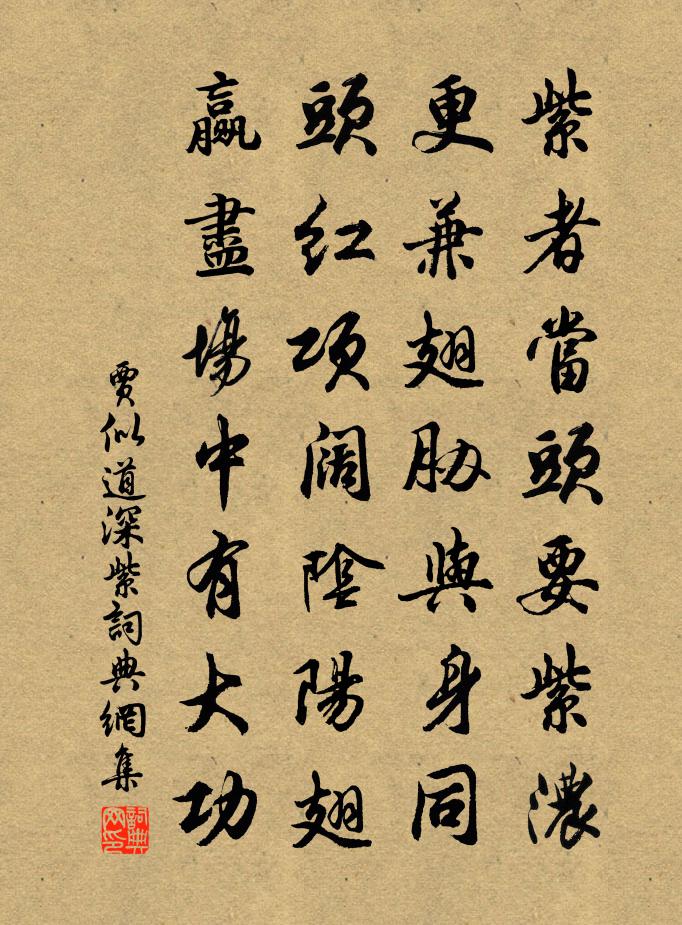 紫者當頭要紫濃
更兼翅肋與身同
頭紅項闊陰陽翅
贏盡場中有大功
賈似道深紫詞典網集
詞典網印